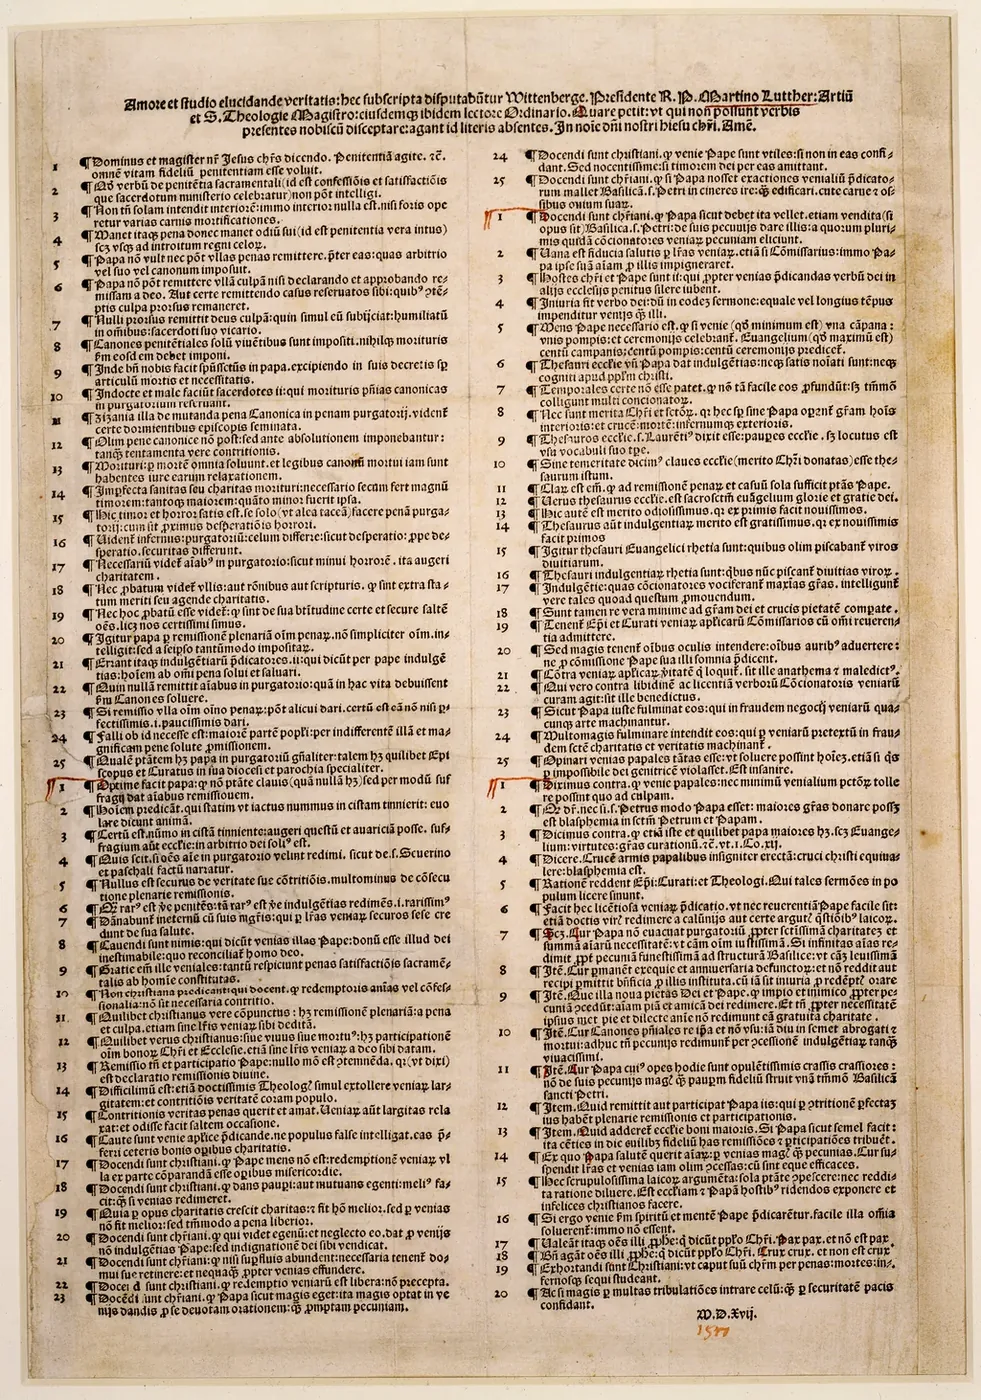 Amore et studio elucidande veritatis: hec subscripta disputabūtur Wittenberge. Presidente R. P. Martino Lutther: Artiū
et S. Theologie Magistro: eiusdemqꝫ ibidem lectore Ordinario. Quare petit: vt qui non possunt verbis
presentes nobiscū disceptare: agant id literis absentes. In noīe dn̄i nostri hiesu chr̄i. Amē.
1 ¶ Dominus et magister nr̄ Jesus chr̄s dicendo. Penitentiā agite. ⁊c̄.
omnē vitam fideliū penitentiam esse voluit.
2 ¶ Qḋ verbū de penitētia sacramentali (id est confessiōis et satisfactiōis
que sacerdotum ministerio celebratur) non pōt intelligi.
3 ¶ Non tn̄ solam intendit interiorē: immo interior nulla est. nisi foris ope
retur varias carnis mortificationes.
4 ¶ Manet itaqꝫ pena donec manet odiū sui (id est penitentia vera intus)
scꝫ vsqꝫ ad introitum regni celoꝝ.
5 ¶ Papa nō vult nec pōt vllas penas remittere. p̄ter eas: quas arbitrio
vel suo vel canonum imposuit.
6 ¶ Papa nō pōt remittere vllā culpā nisi declarando et approbando re⸗
missam a deo. Aut certe remittendo casus reseruatos sibi: quibꝰ ꝯtē⸗
ptis culpa prorsus remaneret.
7 ¶ Nulli prorsus remittit deus culpā: quin simul eū subijciat: humiliatū
in om̄ibus: sacerdoti suo vicario.
8 ¶ Canones penitētiales solū viuētibus sunt impositi. nihilqꝫ morituris
ꝑm eosd em debet imponi.
9 ¶ Inde bn̄ nobis facit sp̄ussctūs in papa. excipiendo in suis decretis sp̄
articulū mortis et necessitatis.
10 ¶ Indocte et male faciūt sacerdotes ii: qui morituris pn̄ias canonicas
in purgatorium reseruant.
11 ¶ Zizania illa de mutanda pena Canonica in penam purgatorij. videnť
certe dormientibus episcopis seminata.
12 ¶ Olim pene canonice nō post: sed ante absolutionem imponebantur:
tanqꝫ tentamenta vere contritionis.
13 ¶ Morituri: ꝑ mortē omnia soluunt. et legibus canonū mortui iam sunt
habentes iure earum relaxationem.
14 ¶ Imꝑfecta sanitas seu charitas morituri: necessario secum fert magnū
timorem: tantoqꝫ maiorem: quāto minor fuerit ipsa.
15 ¶ Hic timor et horror satis est. se solo (vt alea taceā) facere penā purga⸗
torij: cum sit ꝓximus desperatiōis horrori.
16 ¶ Videnť infernus: purgatoriū: celum differre: sicut desperatio: ꝓpe de⸗
speratio. securitas differunt.
17 ¶ Necessariū videť aīabꝰ in purgatorio: sicut minui horrorē. ita augeri
charitatem.
18 ¶ Nec ꝓbatum videť vllis: aut rōnibus aut scripturis. ꝙ sint extra sta⸗
tum meriti seu agende charitatis.
19 ¶ Nec hoc ꝓbatū esse videť: ꝙ sint de sua btītudine certe et secure saltē
oēs. licꝫ nos certissimi simus.
20 ¶ Igitur papa ꝑ remissionē plenariā oīm penaꝝ. nō simpliciter oīm. in⸗
telligit: sed a seipso tantūmodo impositaꝝ.
21 ¶ Errant itaqꝫ indulgētiarū p̄dicatores. ii: qui dicūt per pape indulgē
tias: hoīem ab om̄i pena solui et saluari.
22 ¶ Quin nullā remittit aīabus in purgatorio: quā in hac vita debuissent
ꝑm Canones soluere.
23 ¶ Si remissio vlla oīm oīno penaꝝ: pōt alicui dari. certū est eā nō nisi ꝑ⸗
fectissimis. i. paucissimis dari.
24 ¶ Falli ob id necesse est: maiorē partē popl̄i: per indifferentē illā et ma⸗
gnificam pene solute ꝓmissionem.
25 ¶ Qualē ptātem hꝫ papa in purgatoriū gn̄aliter: talem hꝫ quilibet Epi
scopus et Curatus in sua diocesi et parochia specialiter.
1 ¶ Optime facit papa: ꝙ nō ptāte clauis (quā nullā hꝫ) sed per modū suf
fragij dat aīabus remissionem.
2 ¶ Hoīem predicāt. qui statim vt iactus nummus in cistam tinnierit: euo
lare dicunt animā.
3 ¶ Certū est. nūmo in cistā tinniente: augeri questū et auariciā posse. suf⸗
fragium aūt eccl̄ie: in arbitrio dei soliꝰ est.
4 ¶ Quis scit. si oēs aīe in purgatorio velint redimi. sicut de. s. Seuerino
et paschali factū narratur.
5 ¶ Nullus est securus de veritate sue cōtritiōis. multominus de cōsecu
tione plenarie remissionis.
6 ¶ Qƺ rarꝰ est v̄e penitēs: tā rarꝰ est v̄e indulgētias redimēs. i. rarissimꝰ
7 ¶ Dānabunť ineternū cū suis mgr̄is: qui ꝑ lr̄as veniaꝝ securos sese cre
dunt de sua salute.
8 ¶ Cauendi sunt nimis: qui dicūt venias illas Pape: donū esse illud dei
inestimabile: quo reconciliať homo deo.
9 ¶ Gratie em̄ ille veniales: tantū respiciunt penas satisfactiōis sacramē⸗
talis ab homīe constitutas.
10 ¶ Non christiana predicant: qui docent. ꝙ redemptoris aīas vel cōfes⸗
sionalia: nō sit necessaria contritio.
11 ¶ Quilibet christianus vere cōpunctus: hꝫ remissionē plenariā: a pena
et culpa. etiam sine lr̄is veniaꝝ sibi debitā.
12 ¶ Quilibet verus christianus: siue viuus siue mortuꝰ: hꝫ participationē
oīm bonoꝝ Chr̄i et Ecclesie. etiā sine lr̄is veniaꝝ a deo sibi datam.
13 ¶ Remissio tn̄ et participatio Pape: nullo mō est ꝯtemnēda. qꝛ (vt dixi)
est declaratio remissionis diuine.
14 ¶ Difficilimū est: etiā doctissimis Theologꝭ simul extollere veniaꝝ lar⸗
gitatem: et contritiōis veritatē coram populo.
15 ¶ Contritionis veritas penas querit et amat. Veniaꝝ aūt largitas rela
xat: et odisse facit saltem occasione.
16 ¶ Caute sunt venie apl̄ice p̄dicande. ne populus false intelligat. eas p̄⸗
ferri ceteris bonis oꝑibus charitatis.
17 ¶ Docendi sunt christiani. ꝙ Pape mens nō est: redemptionē veniaꝝ vl
la ex parte cōparandā esse oꝑibus misericordie.
18 ¶ Docendi sunt christiani. ꝙ dans pauꝑi: aut mutuans egenti: meliꝰ fa⸗
cit: qꝫ si venias redimeret.
19 ¶ Quia ꝑ opus charitatis crescit charitas: ⁊ fit hō melior. sed ꝑ venias
nō fit melior: sed tm̄modo a pena liberior.
20 ¶ Docendi sunt chr̄iani. ꝙ qui videt egenū: et neglecto eo. dat ꝓ venijs
nō indulgētias Pape: sed indignationē dei sibi vendicat.
21 ¶ Docendi sunt chr̄iani: ꝙ nisi suꝑfluis abundent: necessaria tenenť do⸗
mui sue retinere: et nequaqꝫ ꝓpter venias effundere.
22 ¶ Docēdi sunt christiani. ꝙ redemptio veniarū est libera: nō p̄cepta.
23 ¶ Docēdi sunt chr̄iani. ꝙ Papa sicut magis eget: ita magis optat in ve
nijs dandis ꝓ se deuotam orationem: qꝫ ꝓmptam pecuniam.
24 ¶ Docendi sunt christiani. ꝙ venie Pape sunt vtiles: si non in eas confi⸗
dant. Sed nocentissime: si timorem dei per eas amittant.
25 ¶ Docendi sunt chr̄iani. ꝙ si Papa nosset exactiones venialiū p̄dicato⸗
rum mallet Basilicā. s. Petri in cineres ire: qꝫ edificari. cute carne ⁊ os⸗
sibus ouium suaꝝ.
1 ¶ Docendi sunt chr̄iani. ꝙ Papa sicut debet ita vellet. etiam vendita (si
opus sit) Basilica. s. Petri: de suis pecunijs dare illis: a quorum pluri⸗
mis quibusdā cōcionatores veniaꝝ pecuniam eliciunt.
2 ¶ Vana est fiducia salutis ꝑ lr̄as veniaꝝ. etiā si Cōmissarius: immo Pa⸗
pa ipse suā aīam ꝓ illis impigneraret.
3 ¶ Hostes chr̄i et Pape sunt ii: qui ꝓpter venias p̄dicandas verbū dei in
alijs ecclesijs penitus silere iubent.
4 ¶ Iniuria fit verbo dei: dū in eodeƺ sermone: equale vel longius tēpus
impenditur venijs qꝫ illi.
5 ¶ Mens Pape necessario est. ꝙ si venie (qḋ minimum est) vna cāpana:
vnis pompis: et ceremonijs celebranť. Euangelium (qḋ maximū est)
centū campanis: centū pompis: centū ceremonijs prediceť.
6 ¶ Thesauri eccl̄ie vn̄ Papa dat indulgētias: neqꝫ satis noīati sunt: neqꝫ
cogniti apud ppl̄m christi.
7 ¶ Temporales certe nō esse patet. ꝙ nō tā facile eos ꝓfundūt: sꝫ tm̄mō
colligunt multi concionatoꝝ.
8 ¶ Nec sunt merita Chr̄i et sctōꝝ. qꝛ hec sꝑ sine Papa oꝑanť gr̄am hoīs
interioris: et crucē: mortē: infernumqꝫ exterioris.
9 ¶ Thesauros eccl̄ie. s. Laurētiꝰ dixit esse: pauꝑes eccl̄ie. sꝫ locutus est
vsu vocabuli suo tꝑe.
10 ¶ Sine temeritate dicimꝰ claues eccl̄ie (merito Chr̄i donatas) esse the⸗
saurum istum.
11 ¶ Claꝝ est em̄. ꝙ ad remissionē penaꝝ et casuū sola sufficit ptās Pape.
12 ¶ Verus thesaurus eccl̄ie. est sacrosctm̄ euāgelium glorie et gratie dei.
13 ¶ Hic autē est merito odiosissimus. qꝛ ex primis facit nouissimos.
14 ¶ Thesaurus aūt indulgentiaꝝ merito est gratissimus. qꝛ ex nouissimis
facit primos
15 ¶ Igitur thesauri Euangelici rhetia sunt: quibus olim piscabanť viros
diuitiarum.
16 ¶ Thesauri indulgentiaꝝ rhetia sunt: qḃus nūc piscanť diuitias viroꝝ.
17 ¶ Indulgētie: quas cōcionatores vociferanť maxīas gr̄as. intelligunť
vere tales quoad questum ꝓmouendum.
18 ¶ Sunt tamen re vera minime ad gr̄am dei et crucis pietatē compate.
19 ¶ Tenenť Ep̄i et Curati veniaꝝ apl̄icarū Cōmissarios cū om̄i reueren⸗
tia admittere.
20 ¶ Sed magis tenenť oībus oculis intendere: oībus auribꝰ aduertere:
ne ꝓ cōmissione Pape sua illi somnia p̄dicent.
21 ¶ Cōtra veniaꝝ apl̄icaꝝ v̄itatē ꝗ loquiť. sit ille anathema ⁊ maledictꝰ.
22 ¶ Qui vero contra libidinē ac licentiā verborū Cōcionatoris veniarū
curam agit: sit ille benedictus.
23 ¶ Sicut Papa iuste fulminat eos: qui in fraudem negocij veniarū qua⸗
cunqꝫ arte machinantur.
24 ¶ Multomagis fulminare intendit eos: qui ꝑ veniarū pretextū in frau⸗
dem sctē charitatis et veritatis machinanť.
25 ¶ Opinari venias papales tātas esse: vt soluere possint hoīeƺ. etiā si qs̄
ꝑ impossibile dei genitricē violasset. Est insanire.
1 ¶ Diximus contra. ꝙ venie papales: nec minimū venialium pctōꝝ tolle
re possint quo ad culpam.
2 ¶ Qḋ dr̄. nec si. s. Petrus modo Papa esset: maiores gr̄as donare possꝫ
est blasphemia in sctm̄ Petrum et Papam.
3 ¶ Dicimus contra. ꝙ etiā iste et quilibet papa maiores hꝫ. scꝫ Euange⸗
lium: virtutes: gr̄as curationū. ⁊c̄. vt. i. Co. xij.
4 ¶ Dicere. Crucē armis papalibus insigniter erectā: cruci christi equiua⸗
lere: blasphemia est.
5 ¶ Rationē reddent Ep̄i: Curati: et Theologi. Qui tales sermōes in po
pulum licere sinunt.
6 ¶ Facit hec licētiosa veniaꝝ p̄dicatio. vt nec reuerentiā Pape facile sit:
etiā doctis virꝭ redimere a calūnijs aut certe argutꝭ q̄stiōibꝰ laicoꝝ.
7 ¶ Scƺ. Cur Papa nō euacuat purgatoriū ꝓpter sctissimā charitateƺ et
summā aīarū necessitatē: vt cām oīm iustissimā. Si infinitas aīas re⸗
dimit ꝓpť pecuniā funestissimā ad structurā Basilice: vt cāƺ leuissimā
8 ¶ Itē. Cur ꝑmanēt exequie et anniuersaria defunctoꝝ: et nō reddit aut
recipi ꝑmittit bn̄ficia ꝓ illis instituta. cū iā sit iniuria ꝓ redēptꝭ orare
9 ¶ Itē. Que illa noua pietas Dei et Pape. ꝙ impio et inimico ꝓpter pe⸗
cuniā ꝯcedūt: aīam piā et amicā dei redimere. Et tn̄ ꝓpter necessitatē
ipsius met pie et dilecte aīe nō redimunt eā gratuita charitate.
10 ¶ Itē. Cur Canones pn̄iales re ip̄a et nō vsu: iā diu in semet abrogati ⁊
mortui: adhuc tn̄ pecunijs redimunť per ꝯcessionē indulgētiaꝝ tanqꝫ
viuacissimi.
11 ¶ Itē. Cur Papa cuiꝰ opes hodie sunt opulētissimis crassis crassiores:
nō de suis pecunijs magꝭ qꝫ pauꝑm fideliū struit vnā tm̄mō Basilicā
sancti Petri.
12 ¶ Item. Quid remittit aut participat Papa iis: qui ꝑ ꝯtritionē ꝑfectaƺ
ius habēt plenarie remissionis et participationis.
13 ¶ Item. Quid adderet eccl̄ie boni maioris. Si Papa sicut semel facit:
ita cēties in die cuilibꝫ fideliū has remissiōes ⁊ ꝑticipatiōes tribueť.
14 ¶ Ex quo Papa salutē querit aīaꝝ: ꝑ venias magꝭ qꝫ pecunias. Cur su⸗
spendit lr̄as et venias iam olim ꝯcessas: cū sint eque efficaces.
15 ¶ Hec scrupulosissima laicoꝝ argumēta: sola ptāte ꝯpescere: nec reddi⸗
ta ratione diluere. Est eccl̄iam ⁊ Papā hostibꝰ ridendos exponere et
infelices christianos facere.
16 ¶ Si ergo venie ꝑm spiritū et mentē Pape p̄dicarētur. facile illa omīa
soluerenť: immo nō essent.
17 ¶ Valeāt itaqꝫ oēs illi ꝓphe: ꝗ dicūt pp̄lo Chr̄i. Pax pax. et nō est pax.
18 ¶ Bn̄ agāt oēs illi ꝓphe: ꝗ dicūt pp̄lo Chr̄i. Crux crux. et non est crux
19 ¶ Exhortandi sunt Christiani: vt caput suū chr̄m per penas: mortes: in⸗
fernosqꝫ sequi studeant.
20 ¶ Ac si magis ꝑ multas tribulatiōes intrare celū: qꝫ ꝑ securitatē pacis
confidant.
M. D. Xvij.
1517